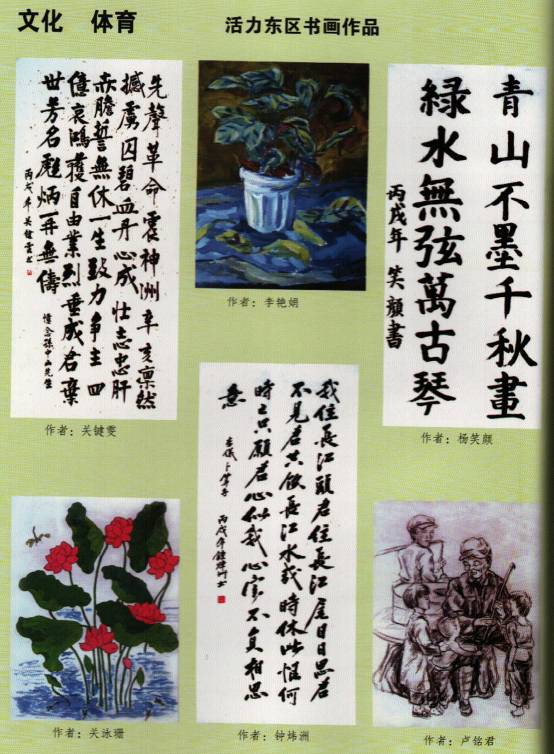 文化 体育
活力东区书画作品
先聲革命震神洲辛亥凛然
撼虜囚碧血丹心成壮志忠肝
赤膽誓無休一生致力争主四
億哀鴻獲自由業烈垂成君棄
世芳名彪炳再無儔
憶念孫中山先生
丙戌年关键雯书
作者：关键雯
作者：李艳娟
青山不墨千秋畫
綠水無弦萬古琴
丙戌年 笑顏書
作者：杨笑颜
我住長江頭君住長江尾日日思君
不見君共飲長江水幾時休此恨何
時已只願君心似我心定不負相思
意
卜算子 丙戌年鍾煒洲书
作者：关泳珊
作者：钟炜洲
作者：卢铭君